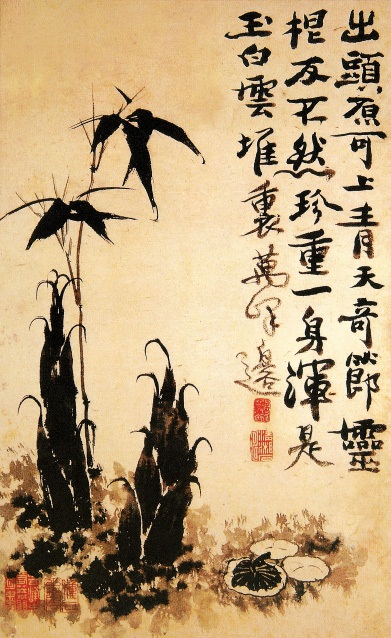 出頭原可上青天奇節靈
根反不然珍重一身渾是
玉白雲堆裏萬峯邊